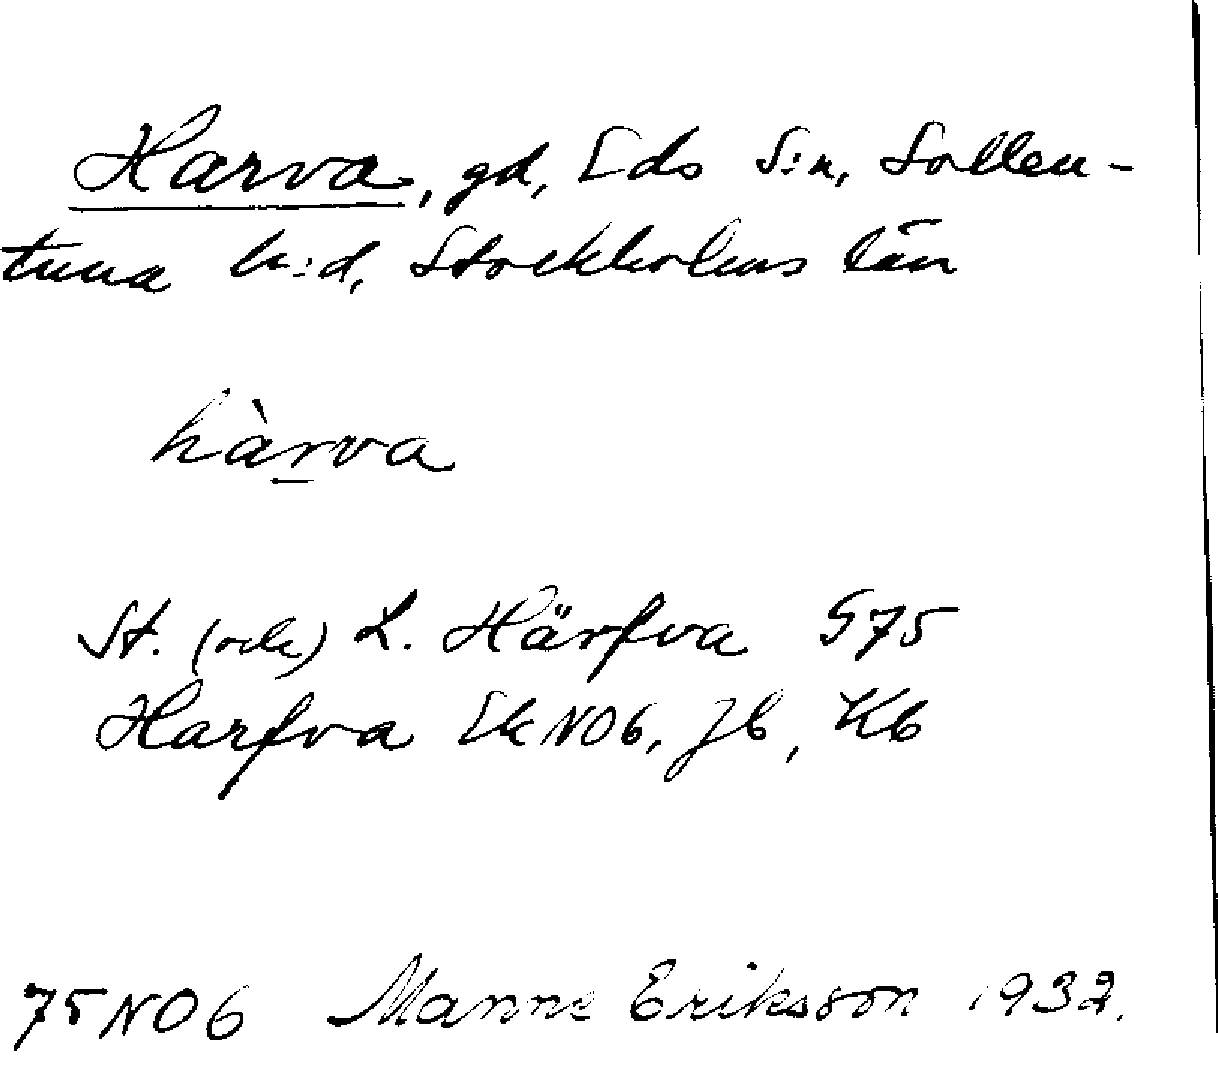 Harva, gd, Eds s:n, Sollen-
tuna h:d, Stockholms län
hàrva
St. (och) L. Härfva G75
Harfva Ek NO6, Jb, Kb
75NO6 Manne Eriksson 1932.